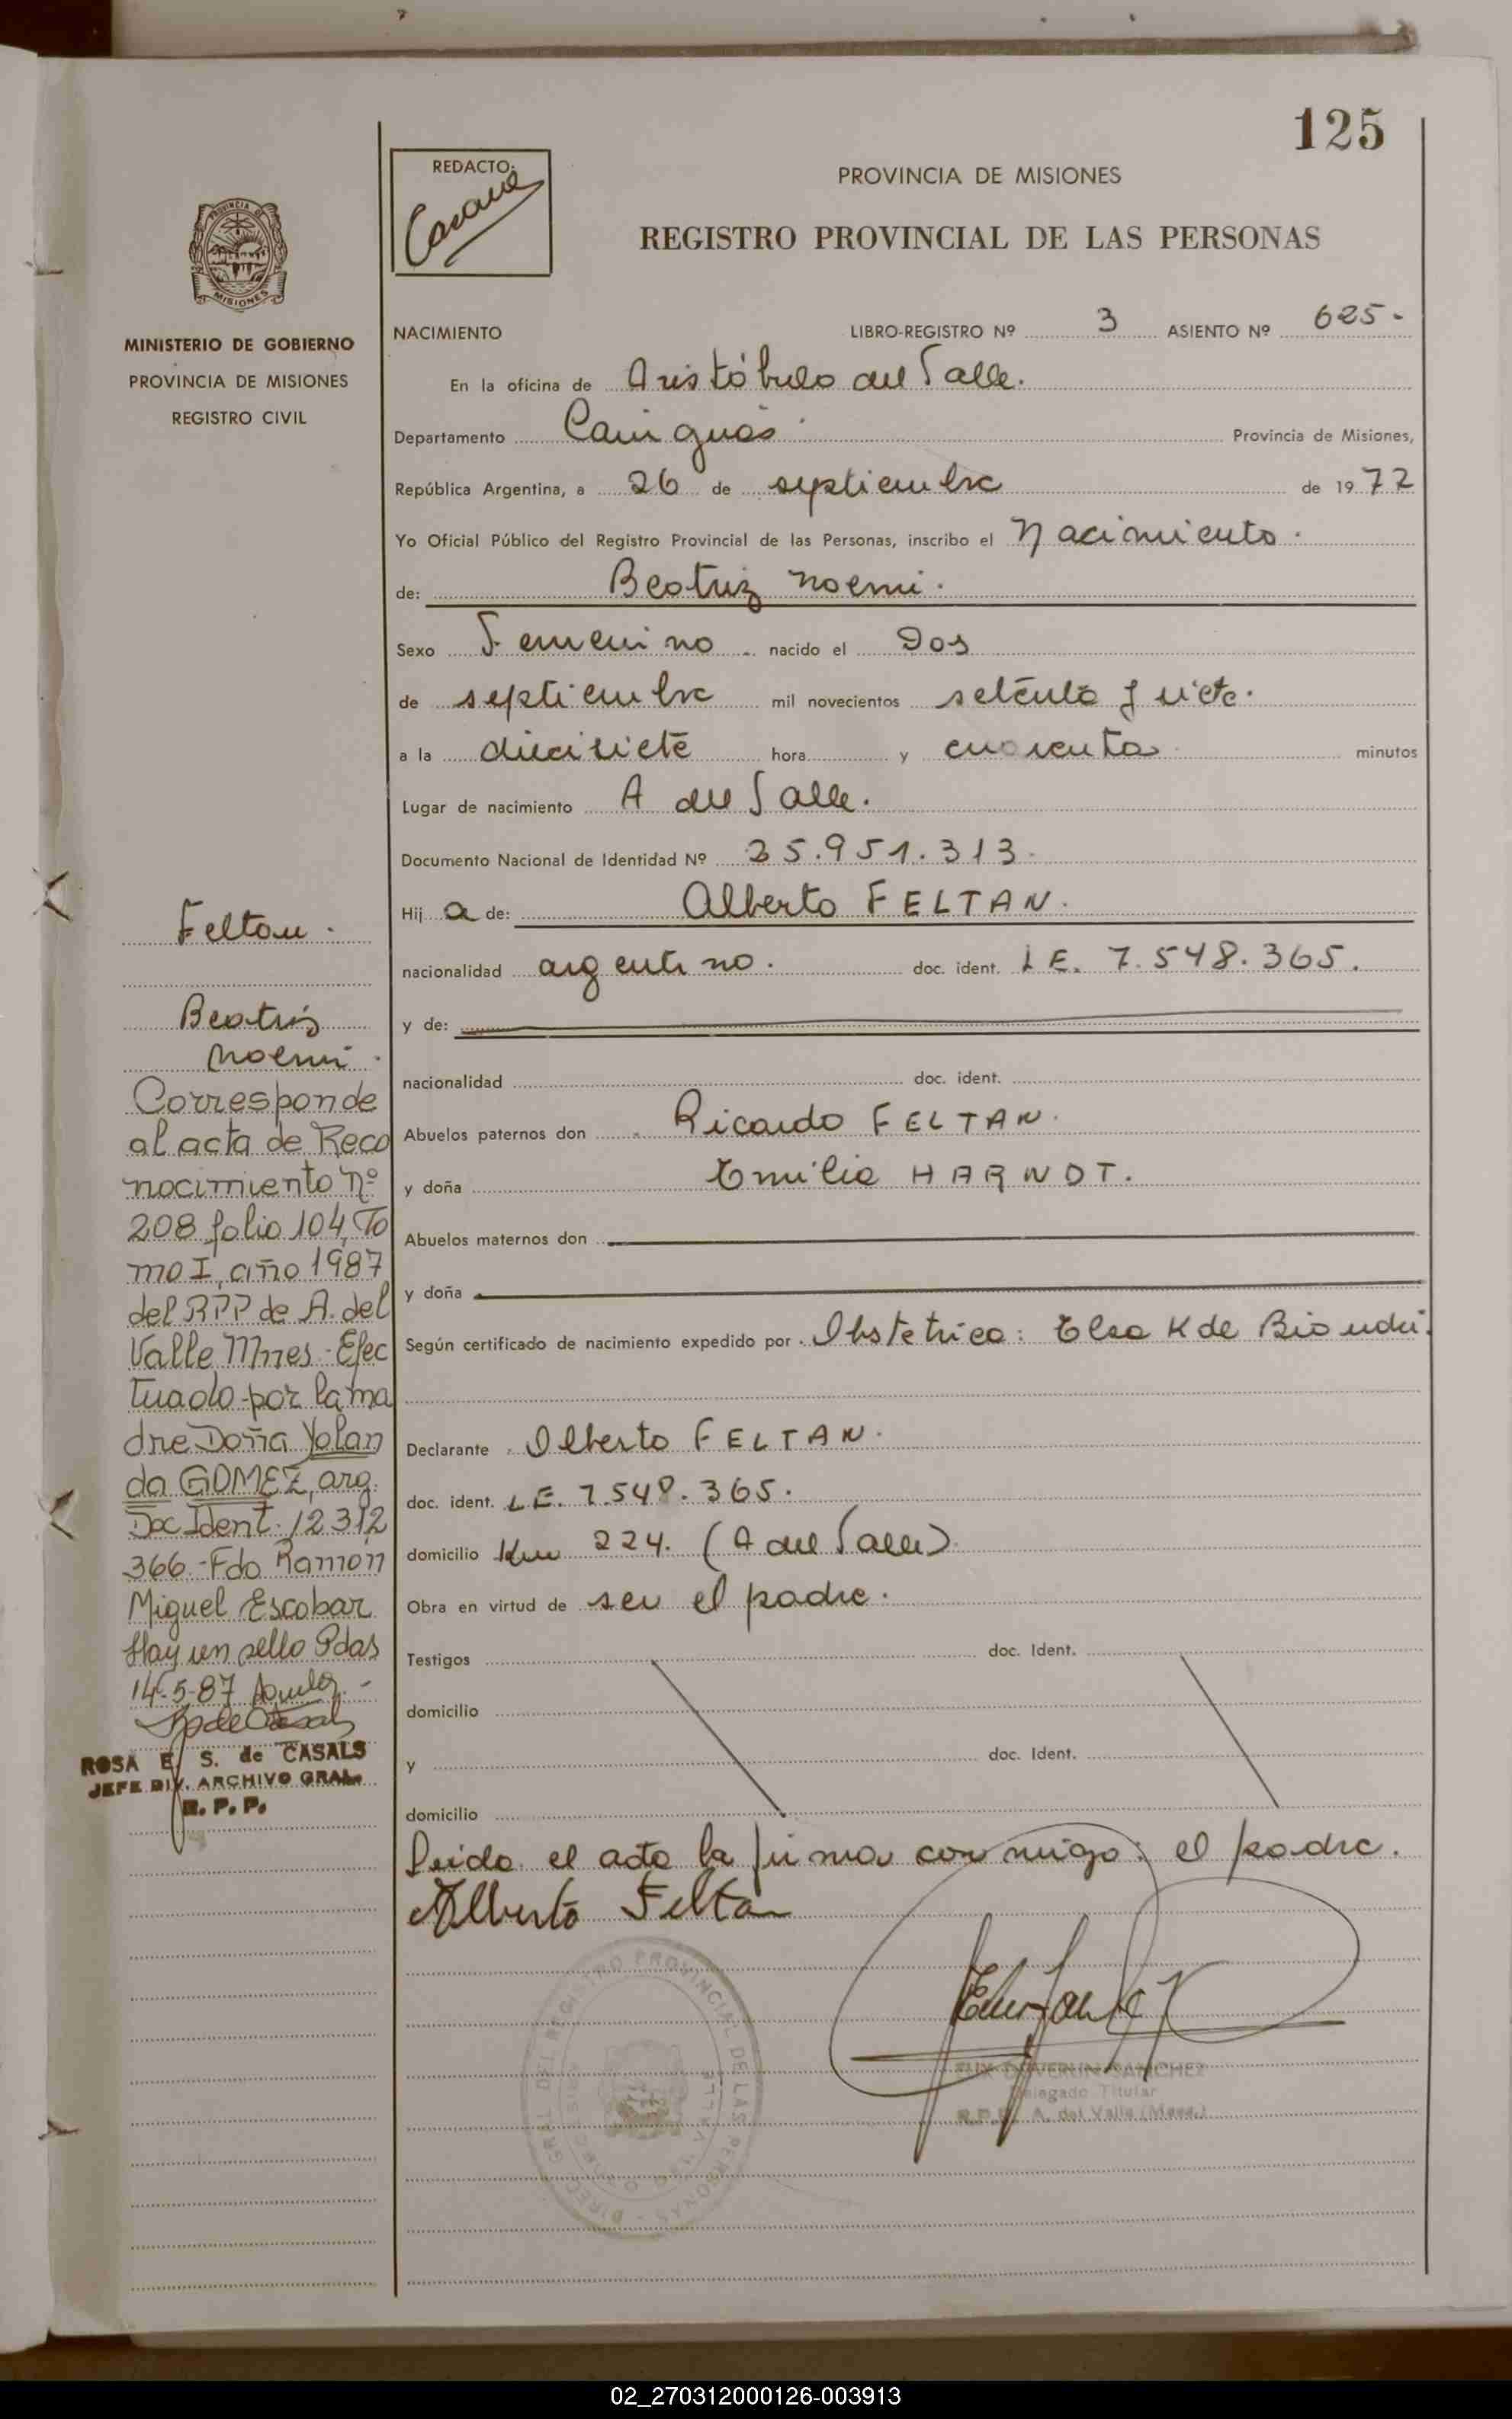 125
REDACTO:
PROVINCIA DE MISIONES
REGISTRO PROVINCIAL DE LAS PERSONAS
PROVINCIA DE
MISIONES
MINISTERIO DE GOBIERNO
PROVINCIA DE MISIONES
REGISTRO CIVIL
NACIMIENTO LIBRO-REGISTRO Nº 3 ASIENTO Nº 625-
En la oficina de Aristóbulo del Valle.
Departamento Cainguás. Provincia de Misiones,
República Argentina, a 26 de septiembre de 1977
Yo Oficial Público del Registro Provincial de las Personas, inscribo el Nacimiento.
de: Beatriz Noemi.
Sexo Femenino nacido el Dos
de septiembre mil novecientos setenta y siete.
a la diecisiete hora y cuarenta minutos
Lugar de nacimiento A del Valle.
Documento Nacional de Identidad Nº 25.951.313.
Hij a de: Alberto FELTAN.
nacionalidad argentino. doc. ident. LE. 7.548.365.
y de:
nacionalidad doc. ident.
Abuelos paternos don Ricardo FELTAN.
y doña Emilia HARNDT.
Abuelos maternos don
y doña
Según certificado de nacimiento expedido por Obstetrica: Elsa K de Biondi.
Declarante Alberto FELTAN.
doc. ident. LE. 7.548.365.
domicilio Km 224. (A del Valle)
Obra en virtud de ser el padre.
Testigos doc. Ident.
domicilio
y doc. Ident.
domicilio
Leída el acta la firma conmigo: el padre.
Alberto Feltan
DIREC. GRAL. DEL REGISTRO PROVINCIAL DE LAS PERSONAS
SANCHEZ
Delegado Titular
R.P.P. A. del Valle (Mnes.)
Feltan.
Beatriz
Noemi.
Corresponde
al acta de Reco
nocimiento Nº
208 folio 104, To
mo I, año 1987
del RPP de A. del
Valle Mnes.- Efec
tuado por la ma
dre Doña Yolan
da GOMEZ, arg.
Doc Ident. 12312
366.- Fdo Ramón
Miguel Escobar
Hay un sello Pdas
14-5-87
ROSA E. S. de CASALS
JEFE DIV. ARCHIVO GRAL.
R. P. P.
02_270312000126-003913